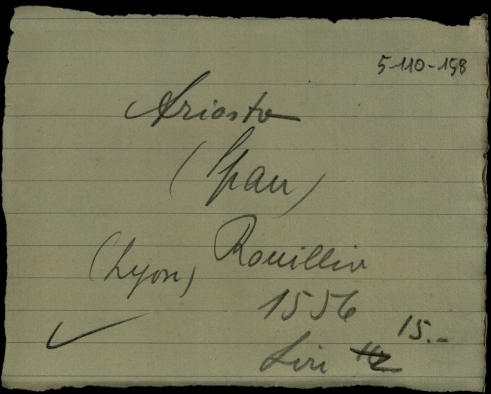 5-110-158
Ariosto
(Span)
(Lyon) Rouillio
1556
15.-
Siri